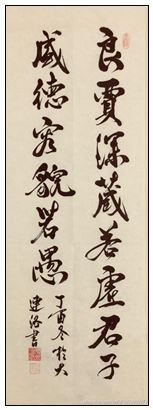 良賈深藏若虛君子
盛德容貌若愚
丁酉冬於大
連洛書